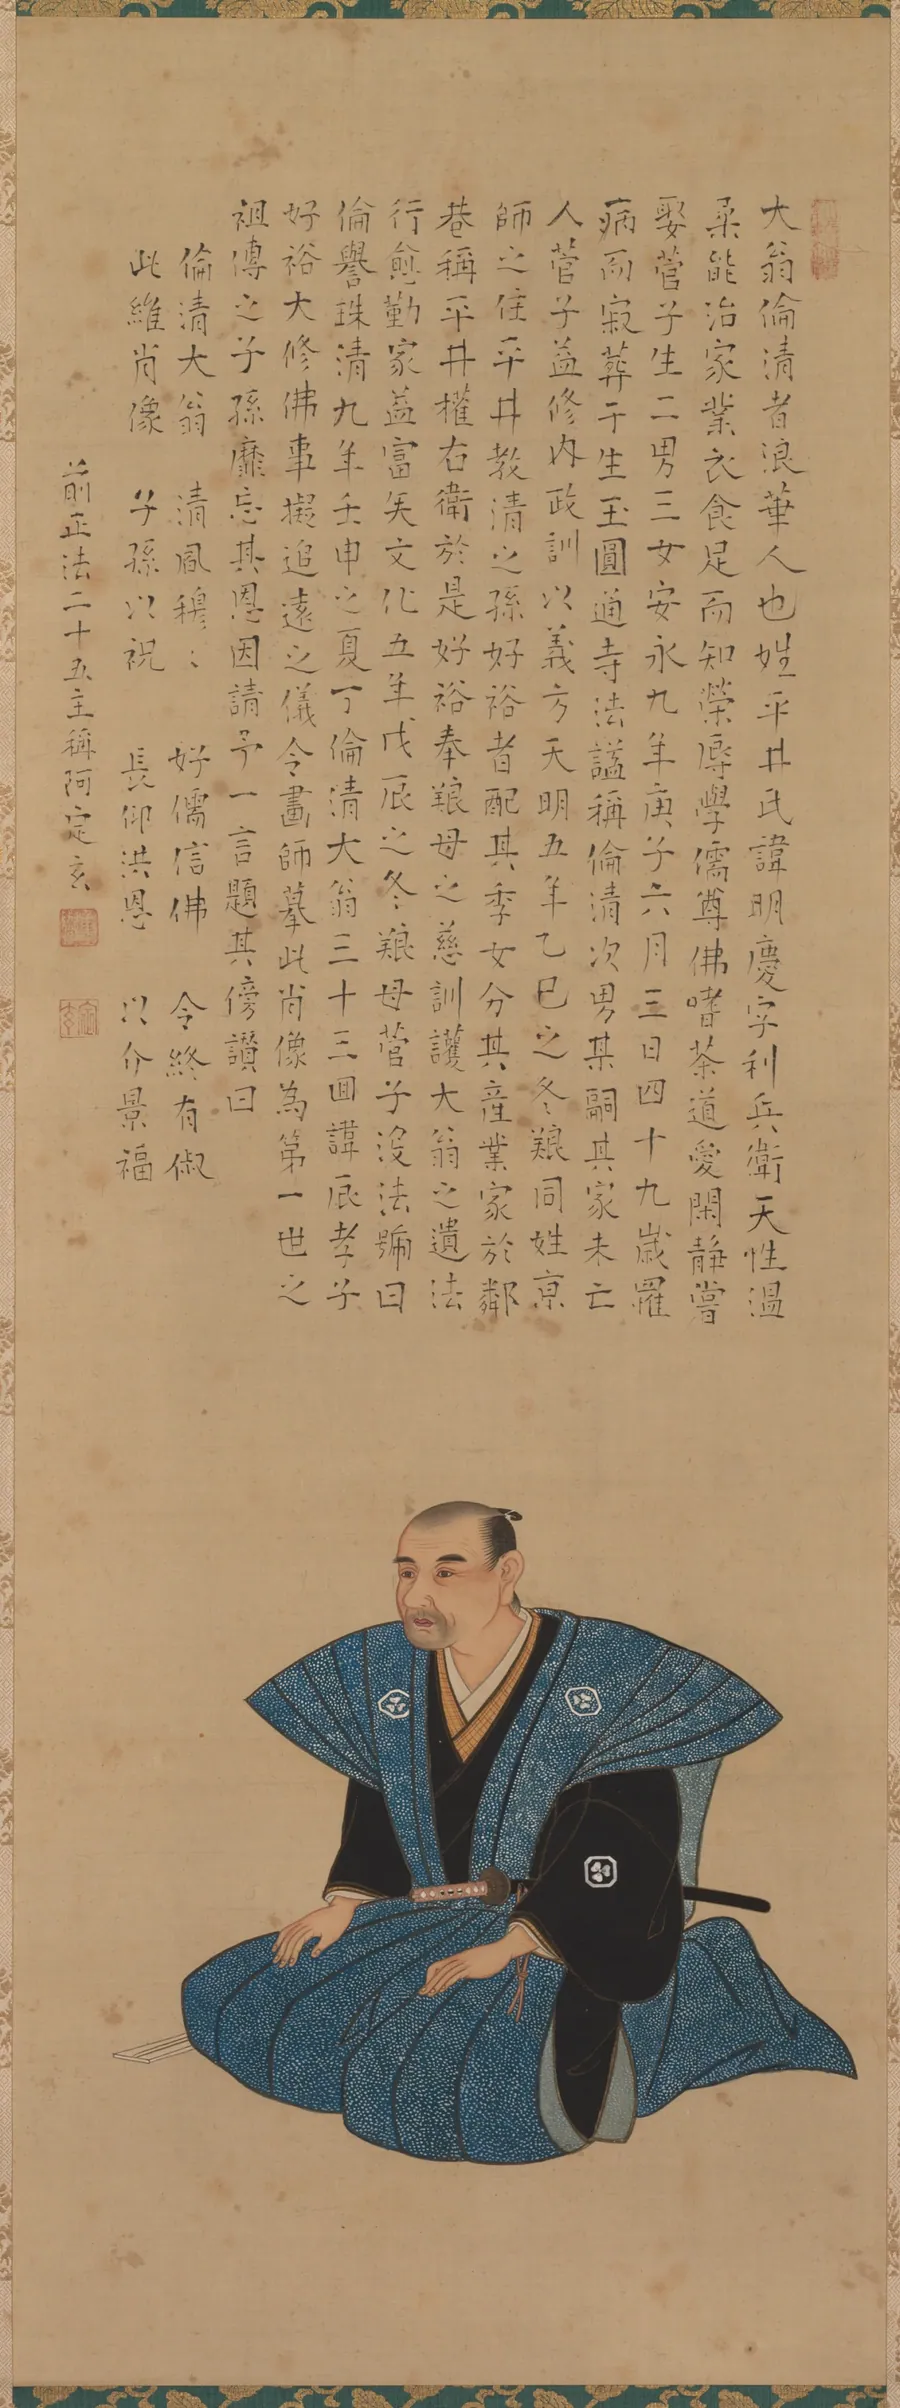 大翁倫清者浪華人也姓平井氏諱明慶字利兵衛天性温
柔能治家業衣食足而知榮辱學儒尊佛嗜茶道愛閑靜嘗
娶菅子生二男三女安永九年庚子六月三日四十九歳罹
病而寂葬于生玉圓通寺法謚稱倫清次男某嗣其家未亡
人菅子益修内政訓以義方天明五年乙巳之冬艱同姓京
師之住平井教清之孫好裕者配其季女分其産業家於鄰
巷稱平井權右衛於是好裕奉艱母之慈訓護大翁之遺法
行愈勤家益富矣文化五年戊辰之冬艱母菅子沒法號曰
倫譽珠清九年壬申之夏丁倫清大翁三十三囬諱辰孝子
好裕大修佛事擬追遠之儀令畫師摹此肖像為第一世之
祖傳之子孫靡忘其恩因請予一言題其傍讚曰
倫清大翁 清風穆〻 好儒信佛 令終有俶
此維肖像 子孫以祝 長仰洪恩 以介景福
前正法二十五主稱阿定玄